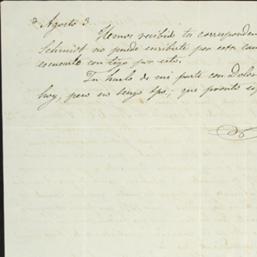 Agosto 3.
Hemos recibido tu corresponden
Schmidt no puede escribirte por esta
con tigo por esto.
Tu de mi parte con Dolor
hoy, pero no tengo tpo; que pronto